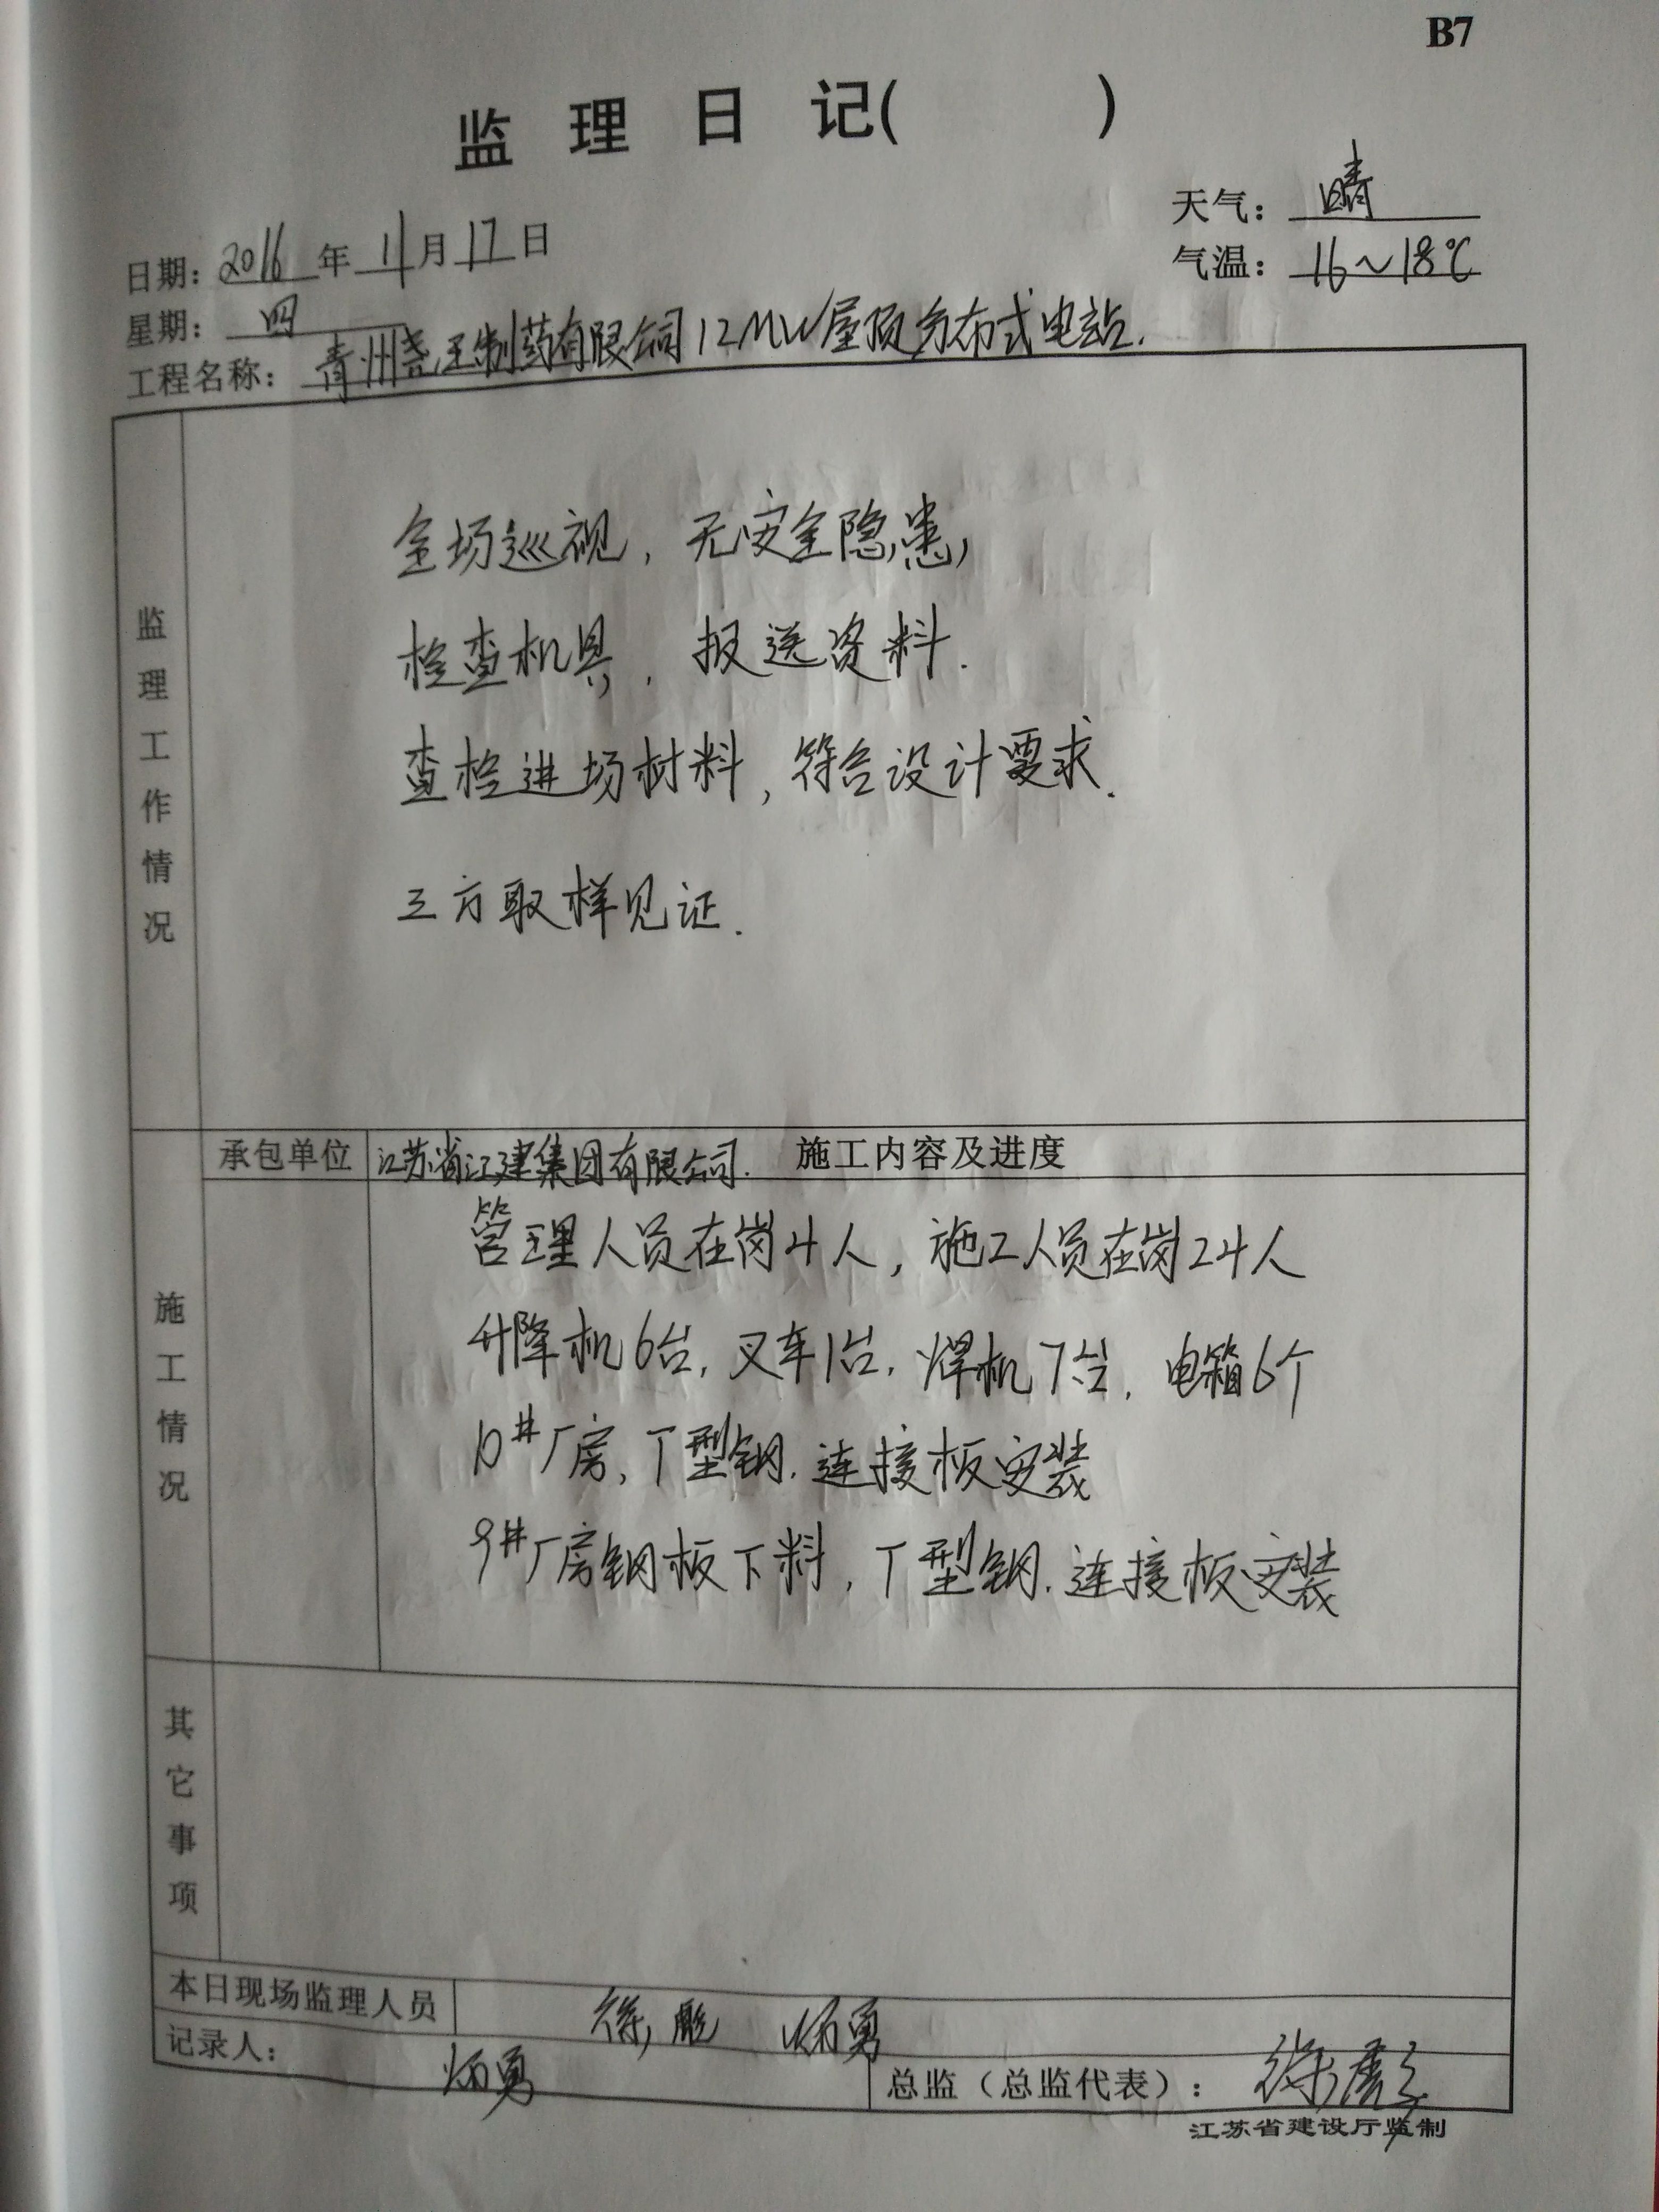 B7
监理日记( )
天气：晴
日期：2016年11月17日
气温：16～18℃
星期：四
工程名称：青州尧王制药有限公司12MW屋顶分布式电站.
监理工作情况
全场巡视，无安全隐患,
检查机具，报送资料.
查检进场材料,符合设计要求.
三方取样见证.
承包单位 江苏省江建集团有限公司. 施工内容及进度
施工情况
管理人员在岗4人，施工人员在岗24人
升降机6台,叉车1台,焊机7台,电箱6个
10#厂房,T型钢.连接板安装
9#厂房钢板下料,T型钢.连接板安装
其它事项
本日现场监理人员 徐彪 炳勇
记录人： 炳勇
总监（总监代表）： 徐
江苏省建设厅监制